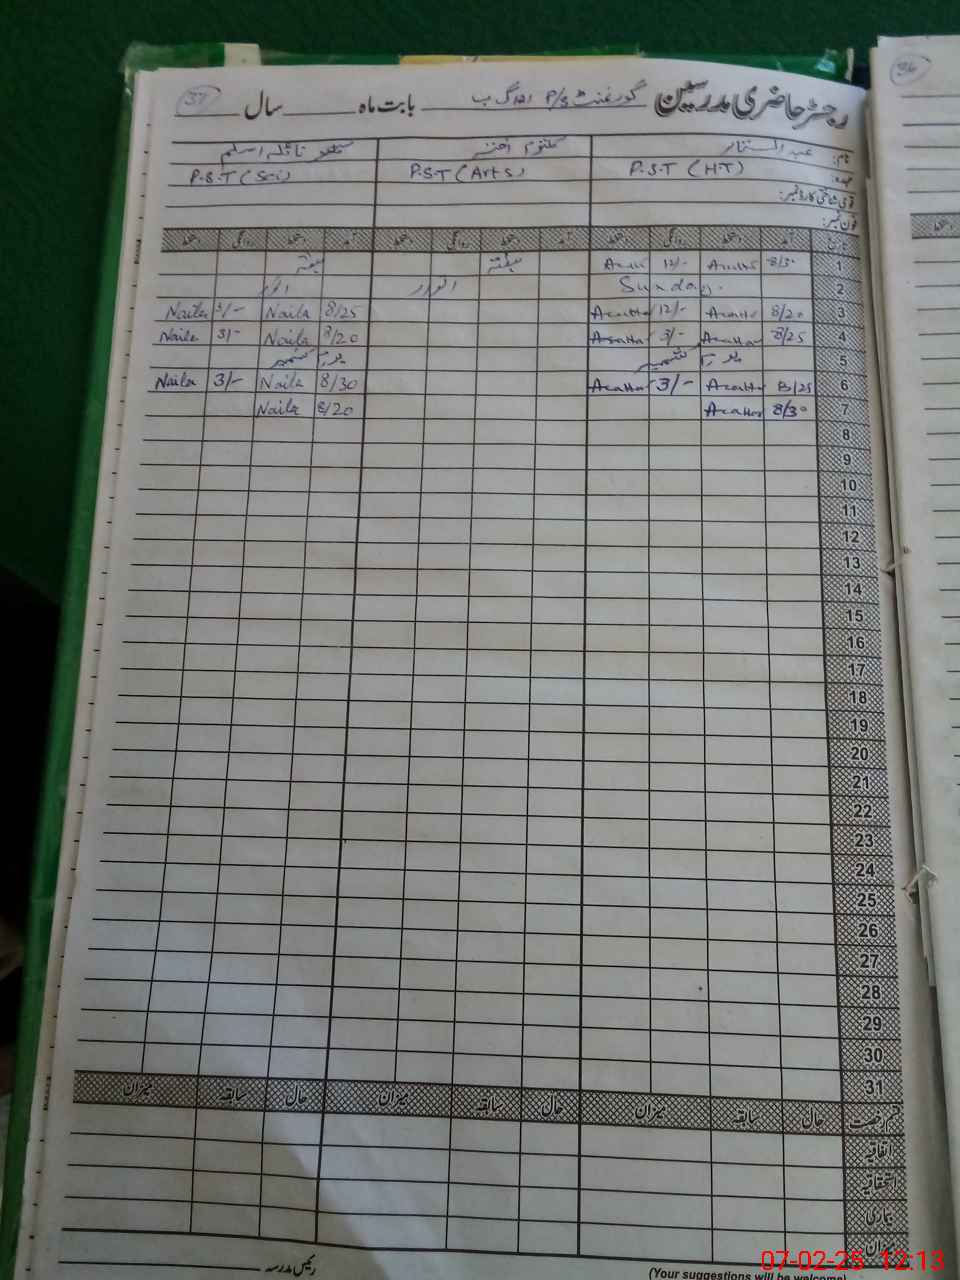 37
36
رجسٹر حاضری مدرسین گورنمنٹ P/S گ ب بابت ماہ سال
نام: عبدالستار کلثوم اختر نائلہ اسلم
عہدہ: P.S.T (H.T) P.S.T (Arts) P.S.T (Sci)
قومی شناختی کارڈ نمبر:
فون نمبر:
تاریخ آمد دستخط روانگی دستخط آمد دستخط روانگی دستخط آمد دستخط روانگی دستخط
1 8/30 12/- ہفتہ ہفتہ
2 Sunday. اتوار اتوار
3 8/20 12/- 8/25 Naila 3/- Naila
4 8/25 3/- 8/20 Naila 3/- Naila
5 یوم کشمیر یوم کشمیر
6 8/25 3/- 8/30 Naila 3/- Naila
7 8/30 8/20 Naila
8
9
10
11
12
13
14
15
16
17
18
19
20
21
22
23
24
25
26
27
28
29
30
31
قسم رخصت حال سابقہ میزان حال سابقہ میزان حال سابقہ میزان
اتفاقیہ
استحقاقیہ
بیماری
میزان
رئیس مدرسہ
(Your suggestions will be welcome)
07-02-25 12:13